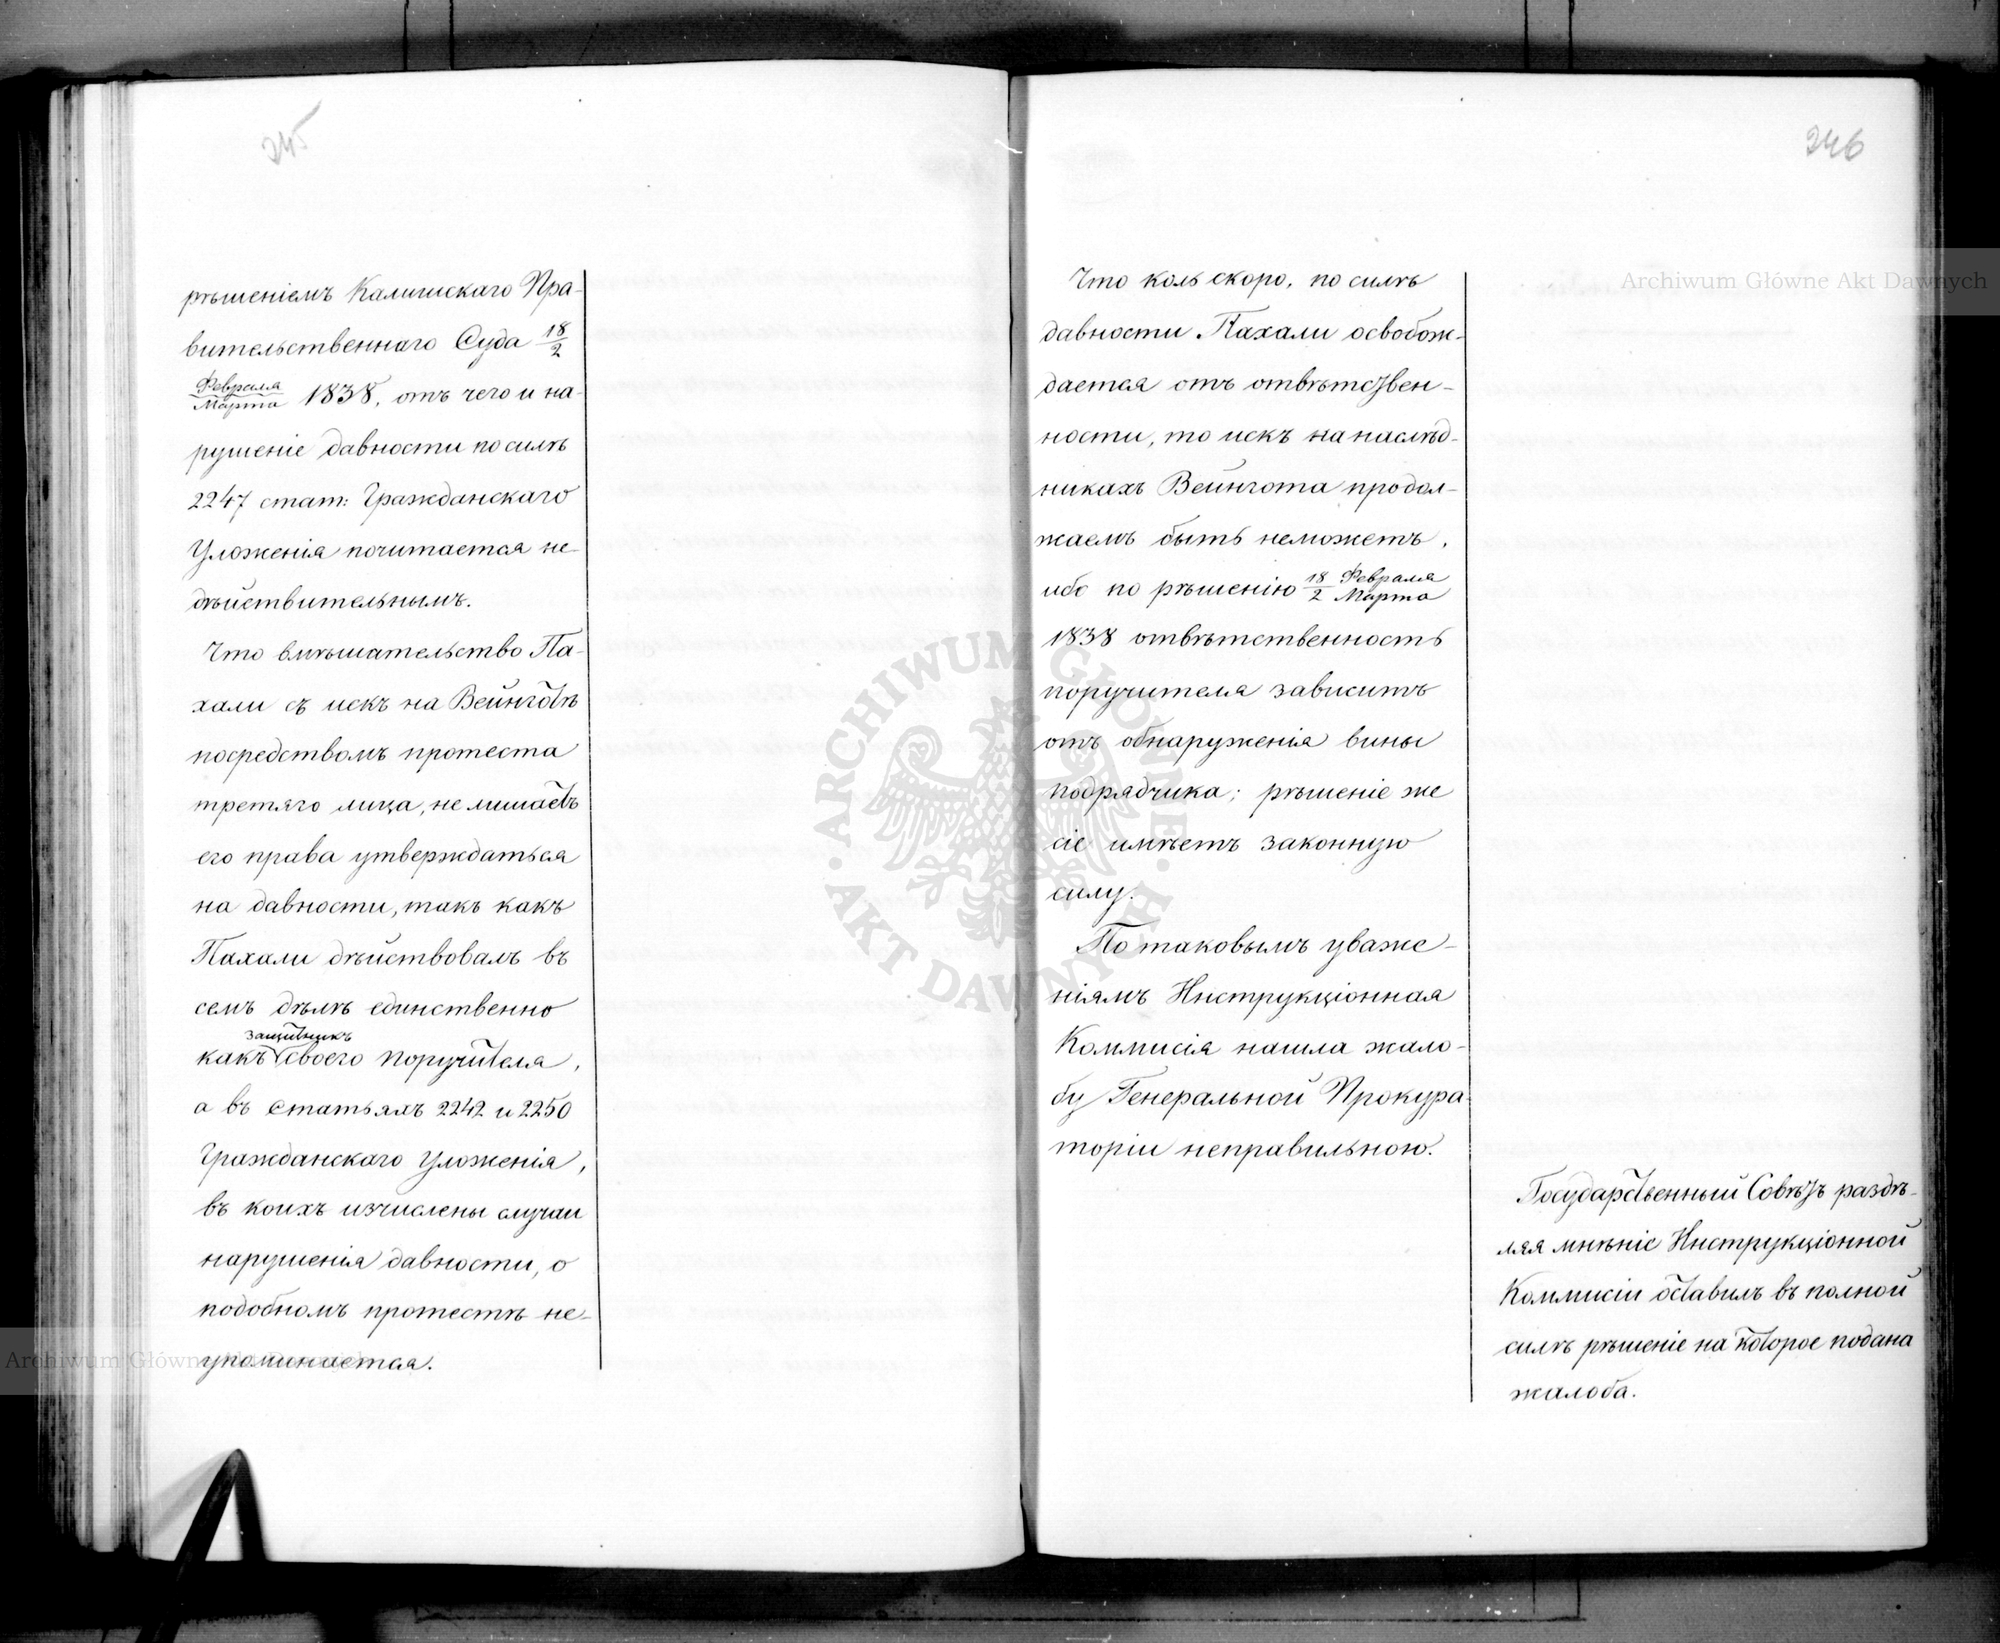 245
рѣшеніемъ Калишскаго Пра-
вительственнаго Суда 18/2
Февраля/Марта 1838, отъ чего и на-
рушеніе давности по силѣ
2247 стат: Гражданскаго
Уложенія почитается не-
дѣйствительнымъ.
Что вмѣшательство Па-
хали съ искъ на Вейнготѣ
посредствомъ протеста
третяго лица, не лишаетъ
его права утверждаться
на давности, такъ какъ
Пахали дѣйствовалъ въ
семъ дѣлѣ единственно
защитникъ
какъ своего поручителя,
а въ статьяхъ 2242 и 2250
Гражданскаго Уложенія,
въ коихъ изчислены случаи
нарушенія давности, о
подобномъ протестѣ не-
упоминается.
246
Что коль скоро, по силѣ
давности Пахали освобож-
дается отъ отвѣтствен-
ности, то искъ на наслѣд-
никахъ Вейнгота продол-
жаемъ быть неможетъ,
ибо по рѣшенію 18/2 Февраля/Марта
1838 отвѣтственность
поручителя зависитъ
отъ обнаруженія вины
подрядчика; рѣшеніе же
сіе имѣетъ законную
силу.
По таковымъ уваже-
ніямъ Инструкціонная
Коммисія нашла жало-
бу Генеральной Прокура-
торіи неправильною.
Государственный Совѣтъ раздѣ-
ляя мнѣніе Инструкціонной
Коммисіи оставилъ въ полной
силѣ рѣшеніе на которое подана
жалоба.
Archiwum Główne Akt Dawnych
Archiwum Główne Akt Dawnych
ARCHIWUM GŁÓWNE · AKT DAWNYCH ·